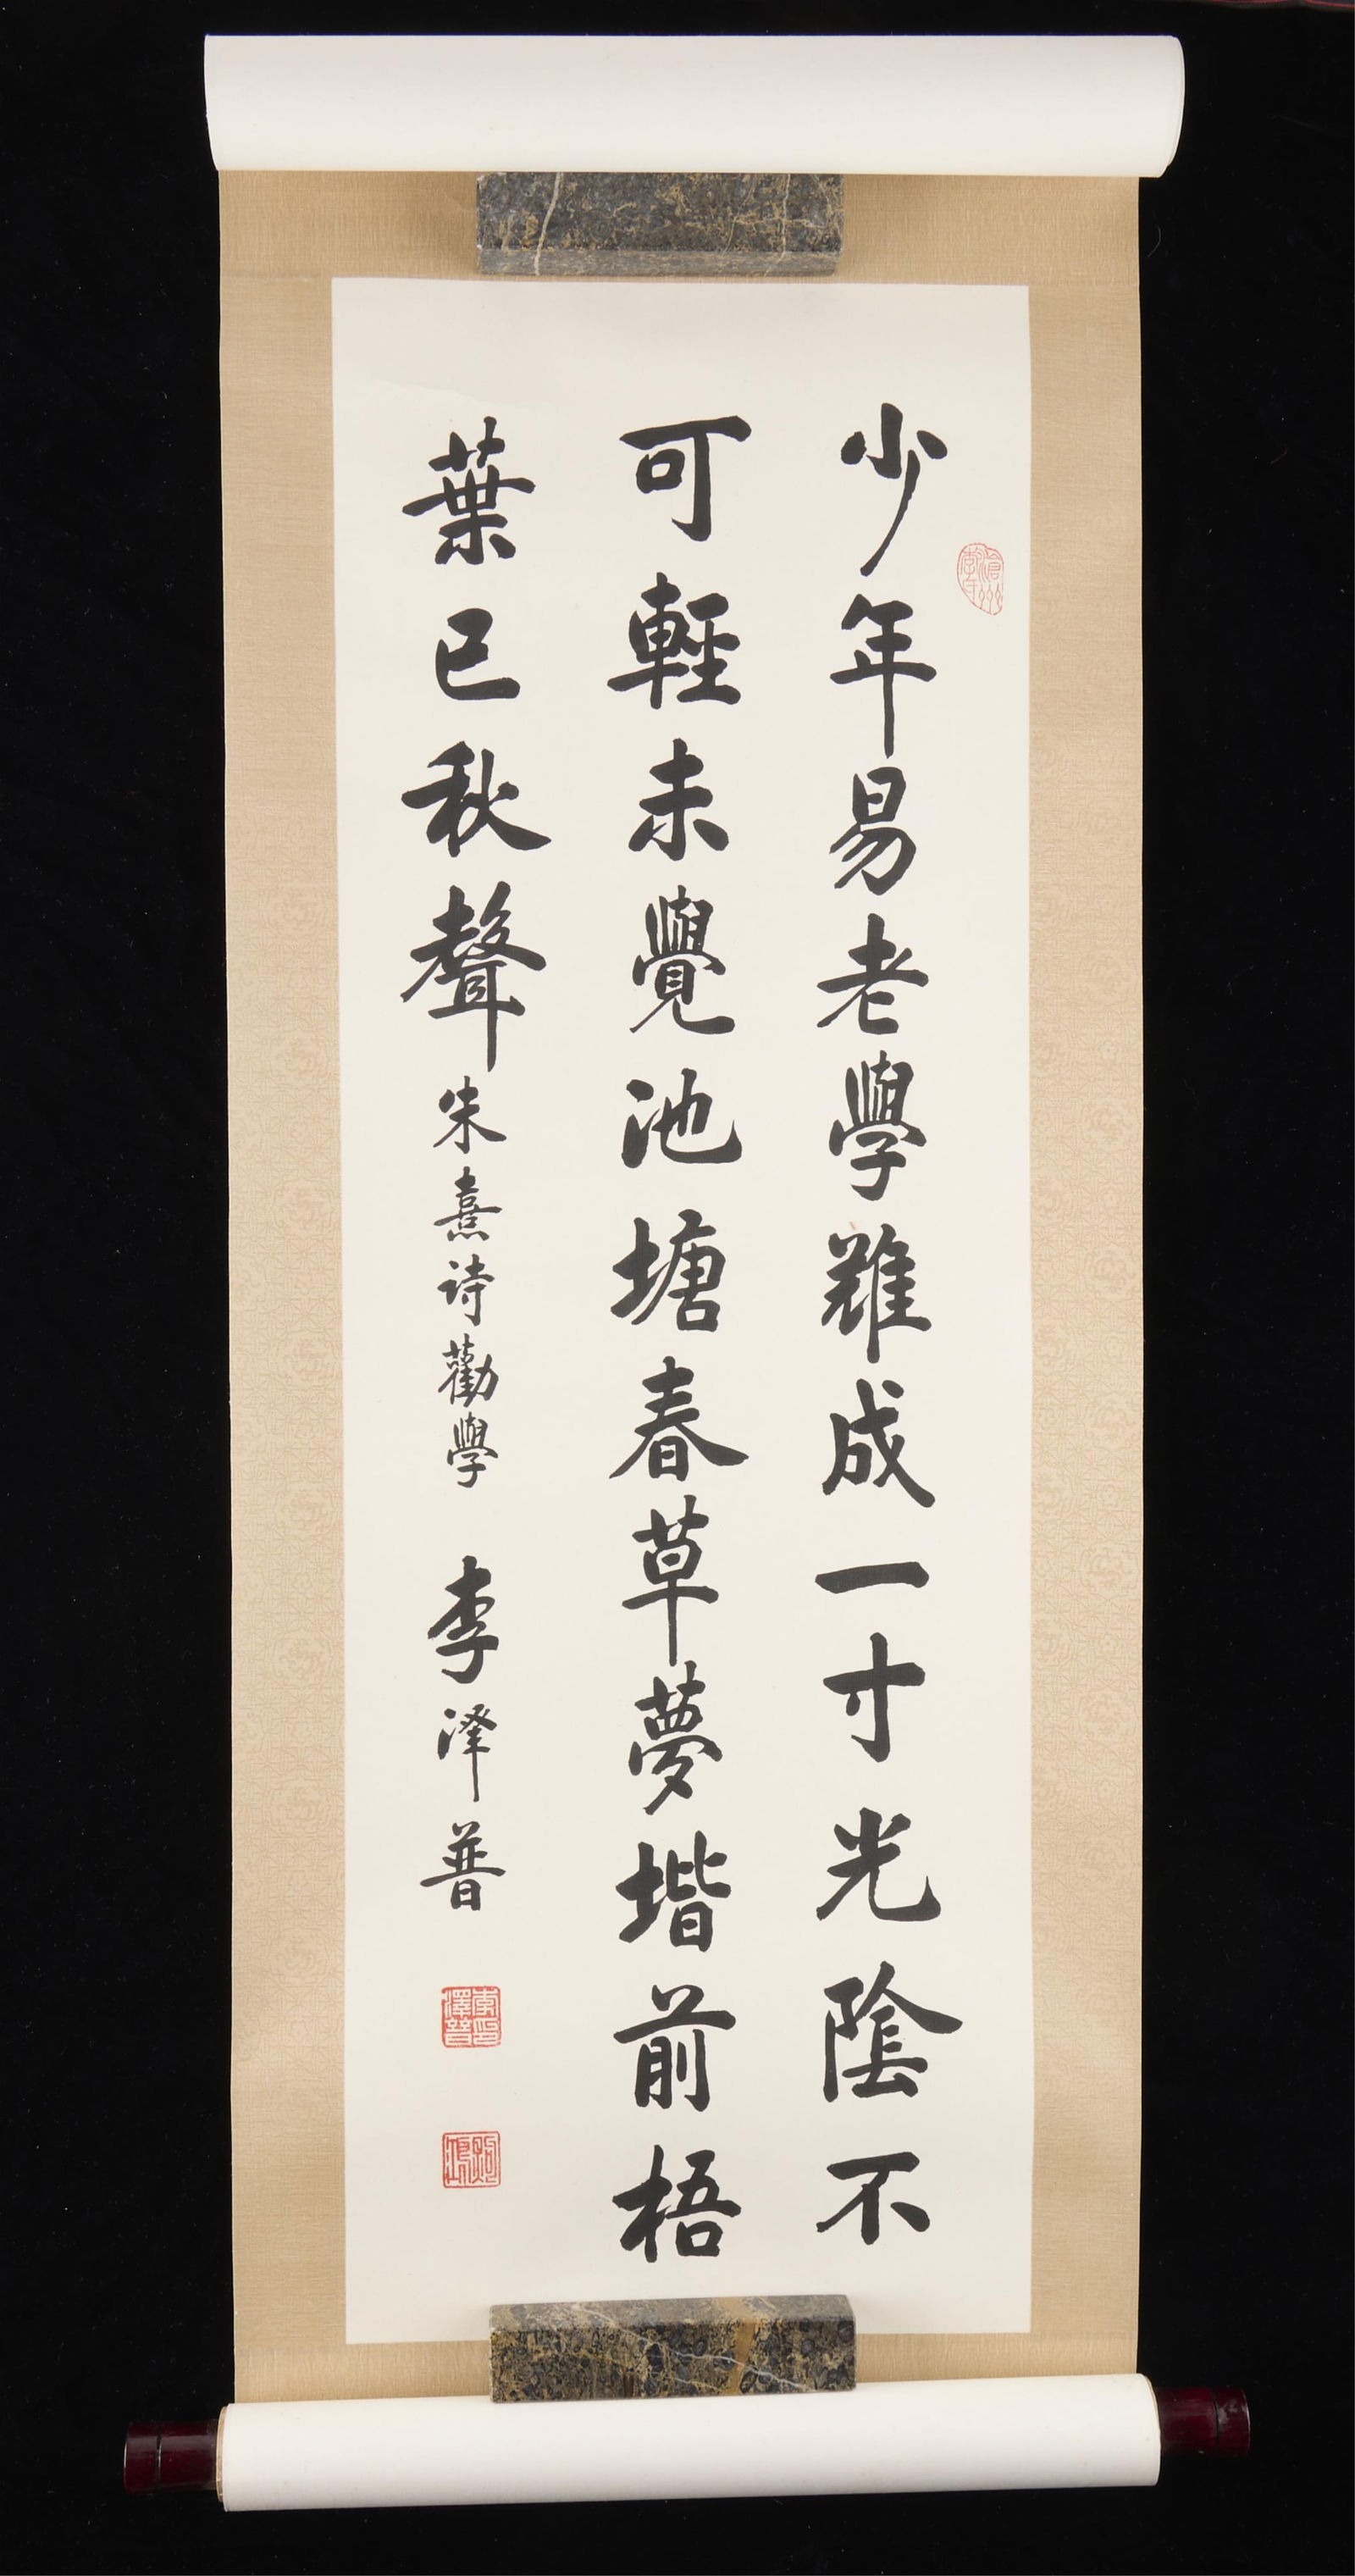 少年易老學難成一寸光陰不
可輕未覺池塘春草夢堦前梧
葉已秋聲朱熹诗勸學 李泽普
滄州李氏
李澤普印